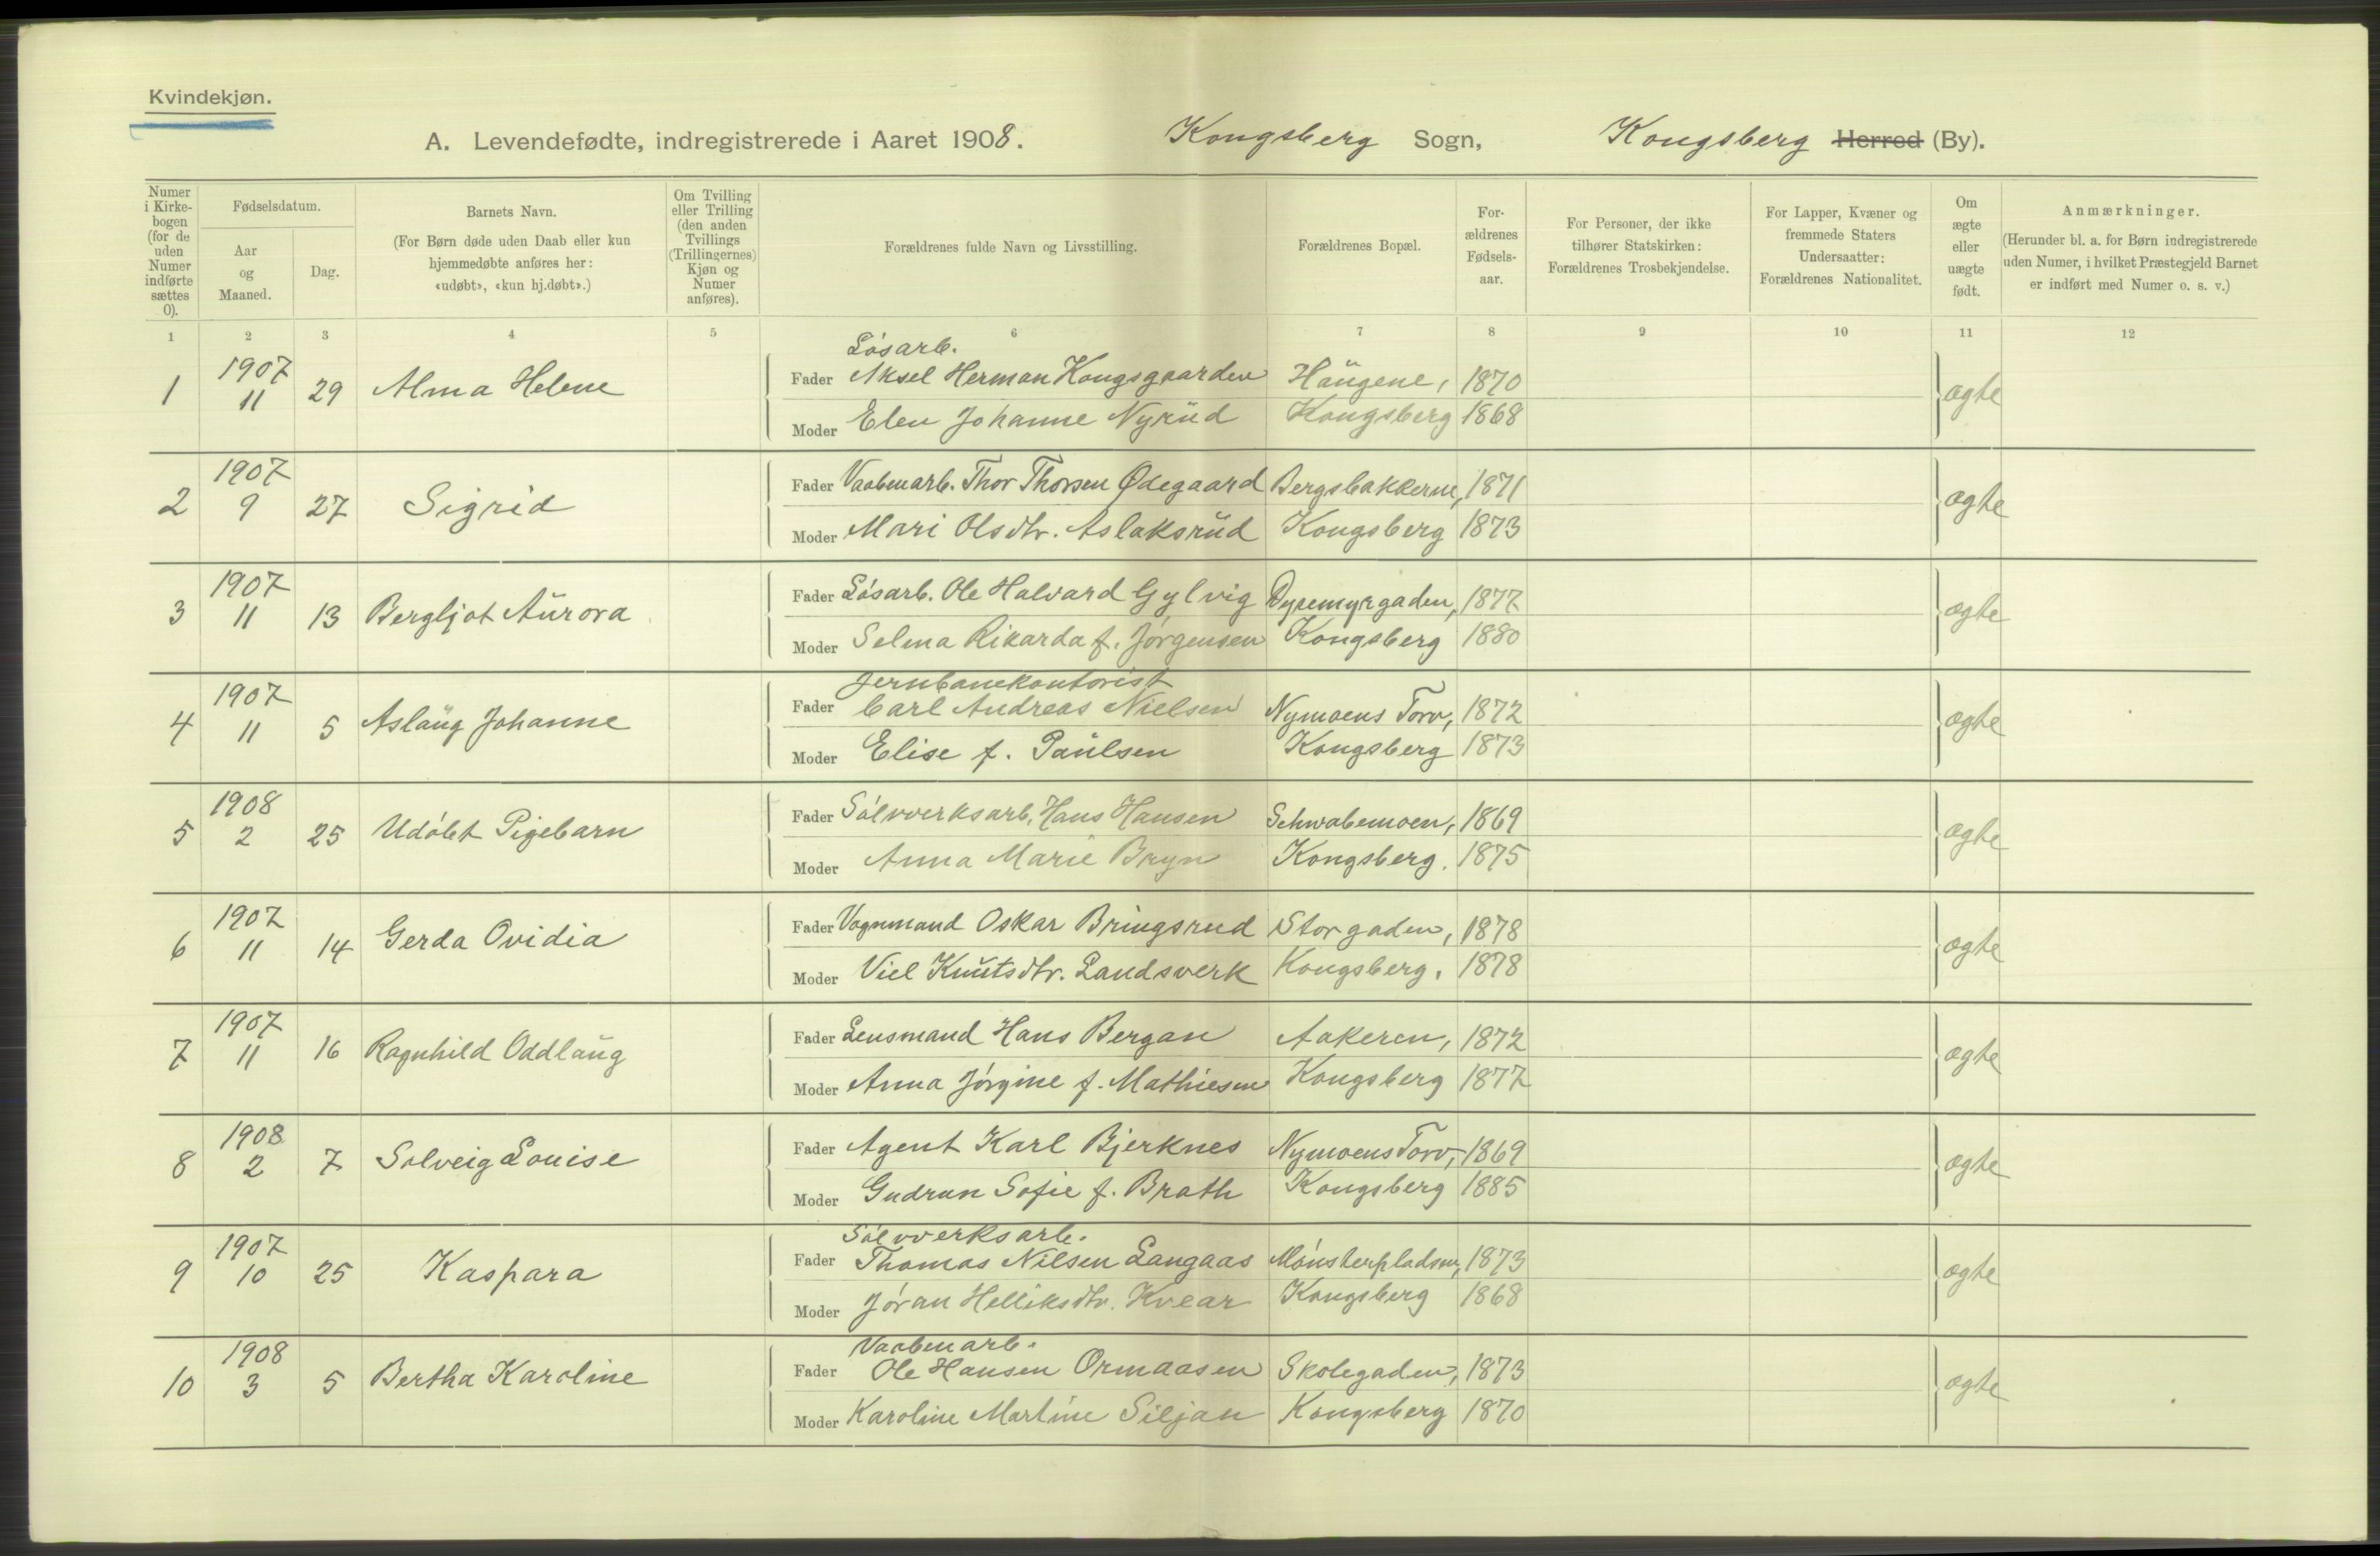 Kvindekjøn.
A. Levendefødte, indregistrerede i Aaret 1908. Kongsberg Sogn, Kongsberg Herred (By).
Numer i Kirkebogen (for de uden Numer indførte sættes 0).
Fødselsdatum.
Aar og Maaned.
Dag.
Barnets Navn.
(For Børn døde uden Daab eller kun hjemmedøbte anføres her: «udøbt», «kun hj.døbt».)
Om Tvilling eller Trilling (den anden Tvillings (Trillingernes) Kjøn og Numer anføres).
Forældrenes fulde Navn og Livsstilling.
Forældrenes Bopæl.
For-ældrenes Fødsels-aar.
For Personer, der ikke tilhører Statskirken: Forældrenes Trosbekjendelse.
For Lapper, Kvæner og fremmede Staters Undersaatter: Forældrenes Nationalitet.
Om ægte eller uægte født.
Anmærkninger.
(Herunder bl. a. for Børn indregistrerede uden Numer, i hvilket Præstegjeld Barnet er indført med Numer o. s. v.)
1 2 3 4 5 6 7 8 9 10 11 12
Løsarb.
1 1907 11 29 Alma Helene Fader Aksel Herman Kongsgaarden Haugene, 1870 ægte
Moder Elen Johanne Nyrud Kongsberg 1868
2 1907 9 27 Sigrid Fader Vaabenarb. Thor Thorsen Ødegaard Bergsbakkerne, 1871 ægte
Moder Mari Olsdtr. Aslaksrud Kongsberg 1873
3 1907 11 13 Bergljot Aurora Fader Løsarb. Ole Halvard Gylvig Dyremyrgaden, 1877 ægte
Moder Selma Rikarda f. Jørgensen Kongsberg 1880
Jernbanekontorist
4 1907 11 5 Aslaug Johanne Fader Carl Andreas Nielsen Nymoens Torv, 1872 ægte
Moder Elise f. Paulsen Kongsberg 1873
5 1908 2 25 Udøbt Pigebarn Fader Sølvverksarb. Hans Hansen Schwabemoen, 1869 ægte
Moder Anna Marie Bryn Kongsberg. 1875
6 1907 11 14 Gerda Ovidia Fader Vognmand Oskar Bringsrud Storgaden, 1878 ægte
Moder Viel Knutsdtr. Landsverk Kongsberg. 1878
7 1907 11 16 Ragnhild Oddlaug Fader Lensmand Hans Bergan Aakeren, 1872 ægte
Moder Anna Jørgine f. Mathiesen Kongsberg 1877
8 1908 2 7 Solveig Louise Fader Agent Karl Bjerknes Nymoens Torv, 1869 ægte
Moder Gudrun Sofie f. Brath Kongsberg 1885
Sølvverksarb.
9 1907 10 25 Kaspara Fader Thomas Nilsen Langaas Mønsterpladsen, 1873 ægte
Moder Jøran Helliksdtr. Kvear Kongsberg 1868
Vaabenarb.
10 1908 3 5 Bertha Karoline Fader Ole Hansen Ormaasen Skolegaden, 1873 ægte
Moder Karoline Martine Siljan Kongsberg 1870